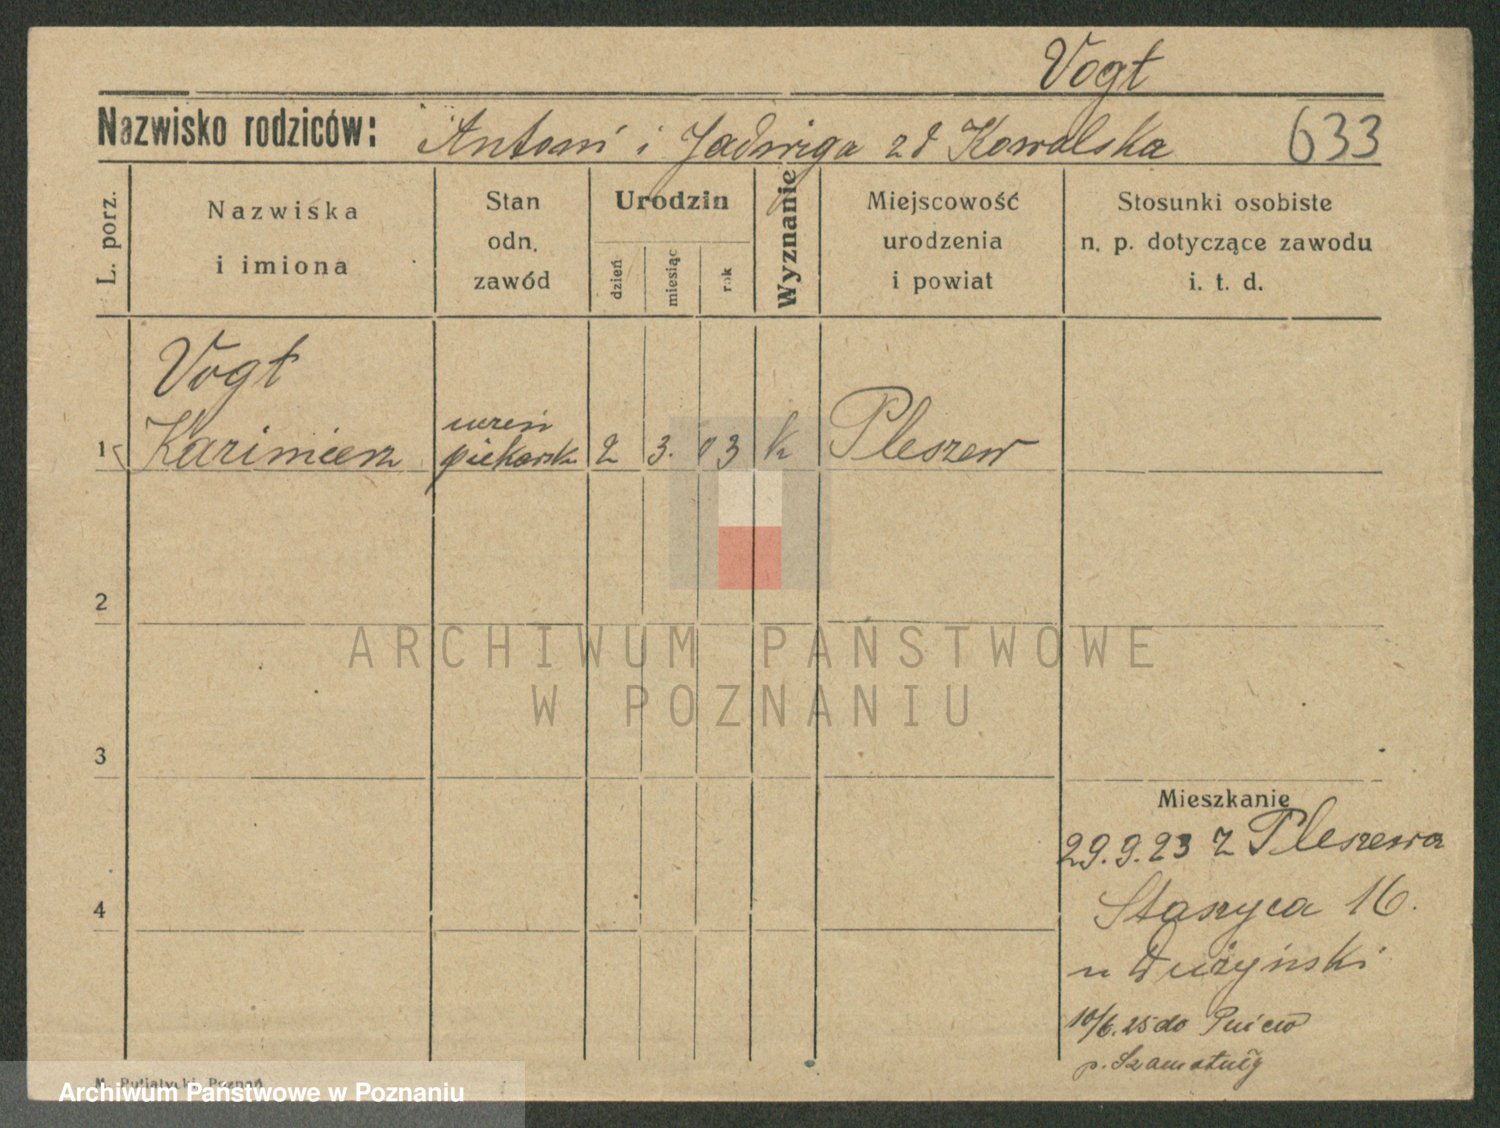 Vogt
Nazwisko rodziców: Antoni i Jadwiga zd Kowalska 633
L. porz.
Nazwiska
i imiona
Stan
odn.
zawód
Urodzin
dzień
miesiąc
rok
Wyznanie
Miejscowość
urodzenia
i powiat
Stosunki osobiste
n. p. dotyczące zawodu
i. t. d.
Vogt
1 Kazimierz
uczeń
piekarsk 2 3. 03 k Pleszew
2
ARCHIWUM PAŃSTWOWE
W POZNANIU
3
Mieszkanie
29.9.23 z Pleszewa
4
Staszyca 16.
u Dużyński
10/6.25 do
p. Szamotuły
Poznań
Archiwum Państwowe w Poznaniu